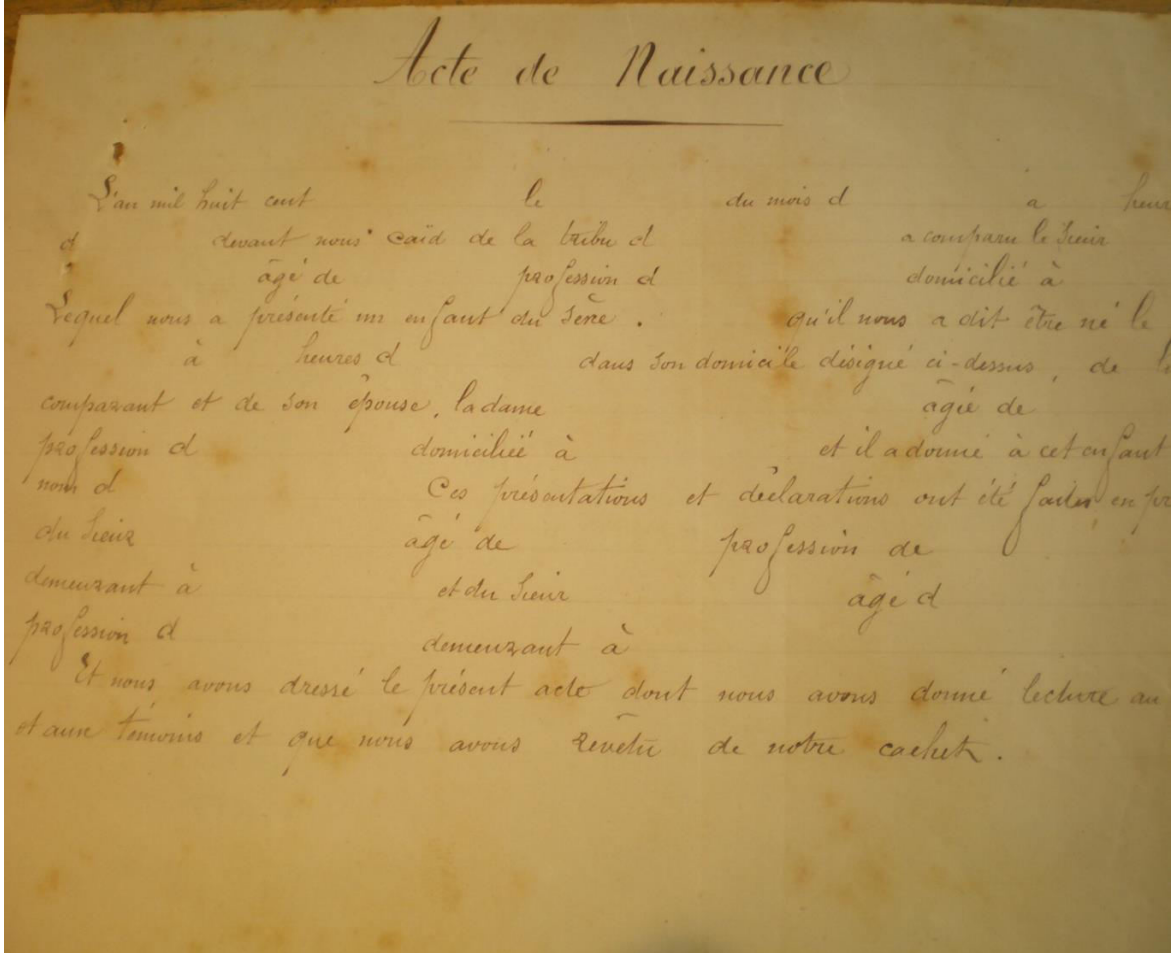 Acte de Naissance
L'an mil huit cent le du mois d a heur
d devant nous caïd de la tribu d a comparu le Sieur
âgé de profession d domicilié à
Lequel nous a présenté un enfant du Sexe . qu'il nous a dit être né le
à heures d dans son domicile désigné ci-dessus, de l
comparant et de son épouse, la dame âgée de
profession d domiciliée à et il a donné à cet enfant
nom d Ces présentations et déclarations ont été faites en pr
du Sieur âgé de profession de
demeurant à et du Sieur âgé d
profession d demeurant à
Et nous avons dressé le présent acte dont nous avons donné lecture au
et aux témoins et que nous avons revêtu de notre cachet.